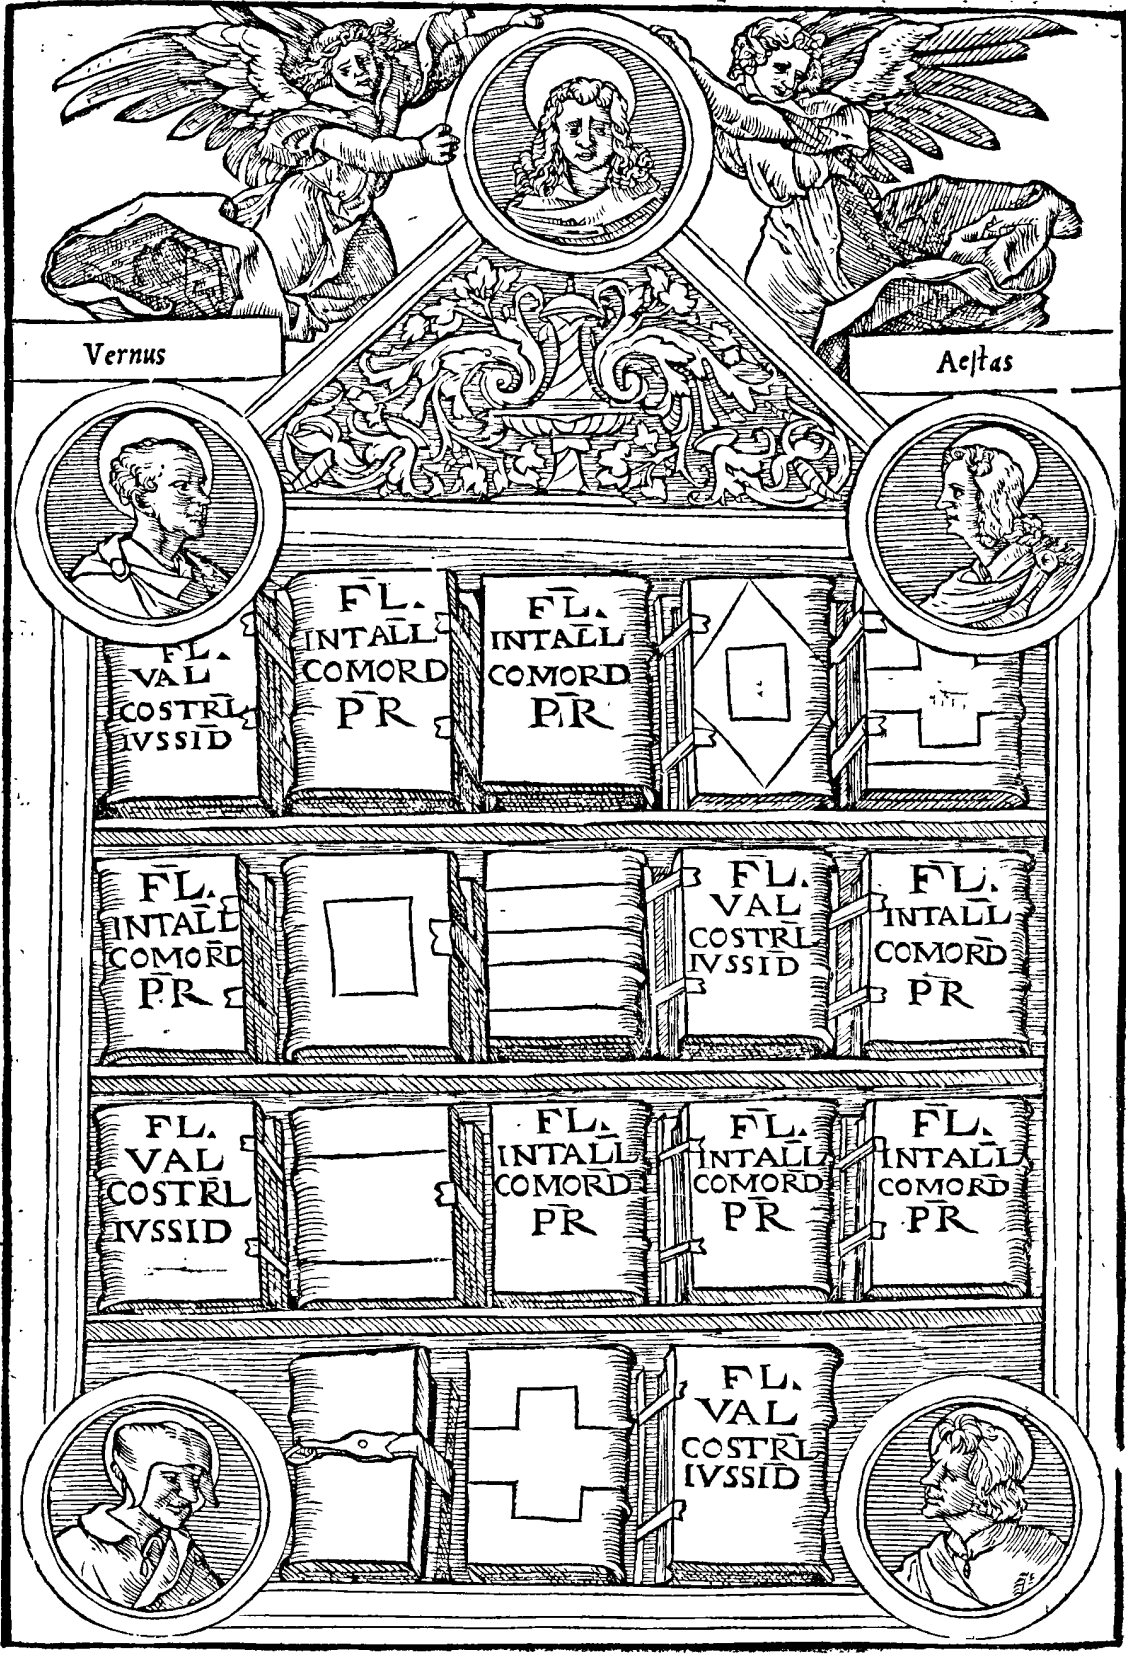 Vernus
Aeſtas
FL.
VAL
COSTR̄L
IVSSID̄
F̄L.
INTAL̄L
COMORD
P̄R
F̄L.
INTAL̄L
COMORD
P̄.R
F̄L.
INTAL̄L
COMOR̄D
P̄.R
FL.
VAL
COSTR̄L
IVSSID̄
F̄L.
INTAL̄L
COMORD̄
P̄R
FL.
VAL
COSTR̄L
IVSSID
FL.
INTAL̄L
COMOR̄D
P̄R
F̄L.
INTAL̄L
COMOR̄D
P̄R
F̄L.
INTAL̄L
COMOR̄D
P̄R
FL.
VAL
COSTR̄L
IVSSID̄